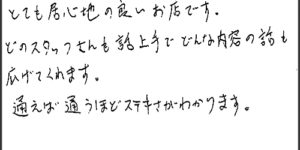 とても居心地の良いお店です。
どのスタッフさんも話上手でどんな内容の話も
広げてくれます。
通えば通うほどステキさがわかります。